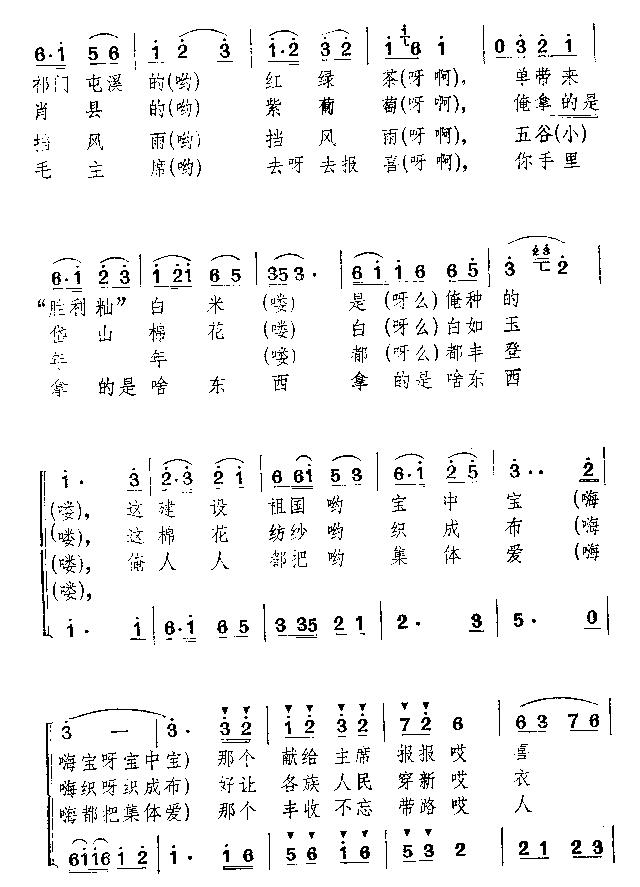 6·i 5 6 | i 2 3 | i·2 3 2 | i 6 i | 0 3 2 i
祁门 屯溪 的(哟) 红 绿 茶(呀 啊), 单带来
肖 县 的(哟) 紫 葡 萄(呀 啊), 俺拿的是
挡 风 雨(哟) 挡 风 雨(呀 啊), 五谷(小)
毛 主 席(哟) 去呀 去报 喜(呀 啊), 你手里
6·i 2 3 | i 2i 6 5 | 35 3· | 6 i i 6 6 5 | 3 2
“胜利籼” 白 米 (喽) 是(呀么)俺种的
岱 山 棉 花 (喽) 白(呀么)白如 玉
年 年 (喽) 都(呀么)都丰 登
拿 的是 啥 东 西 拿 的是 啥东 西
i· 3 | 2·3 2 i | 6 6i 5 3 | 6·i 2 5 | 3·· 2
(喽), 这 建 设 祖国 哟 宝 中 宝 (嗨
(喽), 这 棉 花 纺纱 哟 织 成 布 (嗨
(喽), 俺 人 人 都把 哟 集 体 爱 (嗨
(喽),
i· 3 | 6·i 6 5 | 3 35 2 1 | 2· 3 | 5· 0
3 — | 3· 3 2 | i 2 3 2 | 7 2 6 | 6 3 7 6
嗨宝呀宝中宝) 那个 献给 主席 报报 哎 喜
嗨织呀织成布) 好让 各族 人民 穿新 哎 衣
嗨都把集体爱) 那个 丰收 不忘 带路 哎 人
6ii6 i 2 | i· i 6 | 5 6 i 6 | 5 3 2 | 2 1 2 3